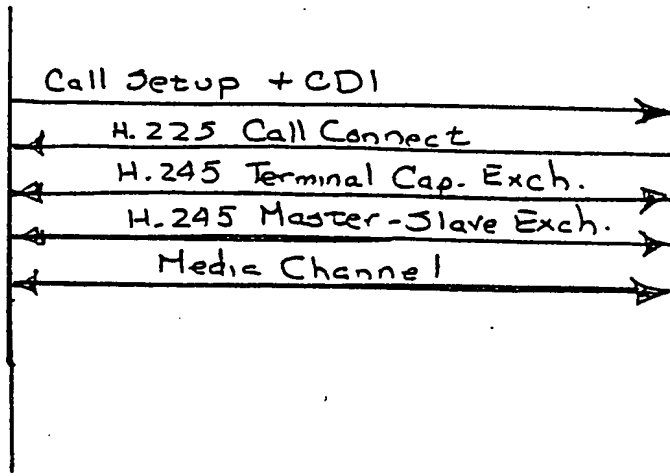 Call Setup + CDI
H.225 Call Connect
H.245 Terminal Cap. Exch.
H.245 Master-Slave Exch.
Media Channel